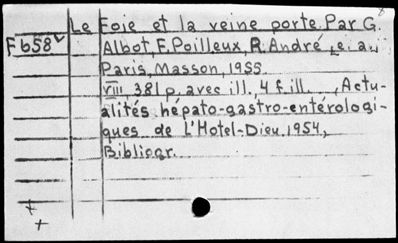 Le Foie et la veine porte. Par G.
F658 Albot, F. Poilleux, R. André, e. a.
Paris, Masson, 1955.
VIII, 381 p. avec ill., 4 f. ill. , Actu-
alités hépato-gastro-entérologi-
ques de L'Hotel-Dieu. 1954,
Bibliogr.